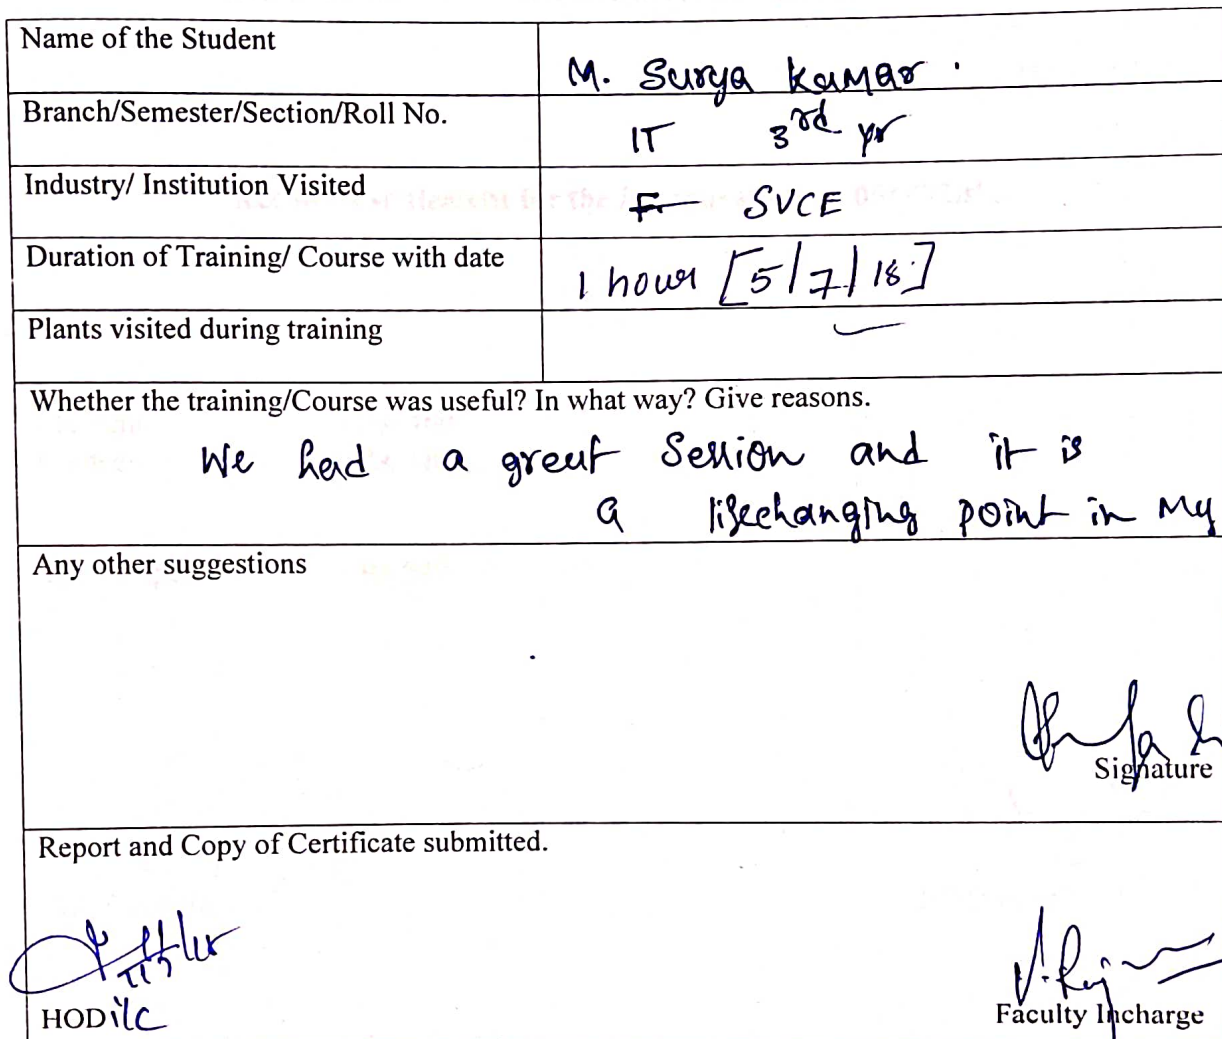 Name of the Student
M. Surya Kumar .
Branch/Semester/Section/Roll No.
IT 3rd yr
Industry/ Institution Visited
SVCE
Duration of Training/ Course with date
1 hour [5/7/18]
Plants visited during training
Whether the training/Course was useful? In what way? Give reasons.
We had a great Session and it is
a lifechanging point in My
Any other suggestions
Signature
Report and Copy of Certificate submitted.
HOD i/c
Faculty Incharge